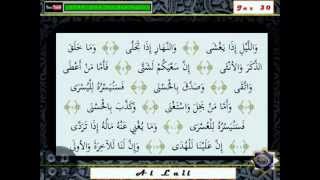 Juz 30
وَاللَّيْلِ إِذَا يَغْشَى وَالنَّهَارِ إِذَا تَجَلَّى وَمَا خَلَقَ
الذَّكَرَ وَالْأُنْثَى إِنَّ سَعْيَكُمْ لَشَتَّى فَأَمَّا مَنْ أَعْطَى
وَاتَّقَى وَصَدَّقَ بِالْحُسْنَى فَسَنُيَسِّرُهُ لِلْيُسْرَى
وَأَمَّا مَنْ بَخِلَ وَاسْتَغْنَى وَكَذَّبَ بِالْحُسْنَى
فَسَنُيَسِّرُهُ لِلْعُسْرَى وَمَا يُغْنِي عَنْهُ مَالُهُ إِذَا تَرَدَّى
إِنَّ عَلَيْنَا لَلْهُدَى وَإِنَّ لَنَا لَلْآخِرَةَ وَالْأُولَى
Al Lail